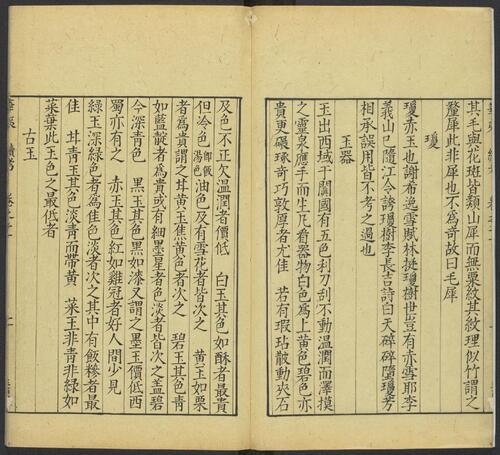 其毛與花斑皆類山犀而無粟紋其紋理似竹謂之
犛犀此非犀也不爲奇故曰毛犀
瓊
瓊赤玉也謝希逸雪賦林挺瓊樹世豈有赤雪耶李
義山已隨江令誇瓊樹李長吉詩曰天碎碎墮瓊芳
相承誤用皆不考之過也
玉器
玉出西域于闐國有五色利刀刮不動温潤而澤摸
之靈泉應手而生凡看器物白色爲上黄色碧色亦
貴更碾琢奇巧敦厚者尤佳 若有瑕玷皵動夾石
及色不正欠温潤者價低 白玉其色如酥者最貴
但冷色油色及有雪花者皆次之 黄玉如栗
者爲貴謂之甘黄玉焦黄色者次之 碧玉其色靑
如藍靛者爲貴或有細墨星者色淡者皆次之盖碧
今深青色 黒玉其色黒如漆又謂之墨玉價低西
蜀亦有之 赤玉其色紅如雞冠者好人間少見
緑玉深緑色者爲佳色淡者次之其中有飯糝者最
佳 甘青玉其色淡青而帶黄 菜玉非青非緑如
菜葉此玉色之最低者
古玉